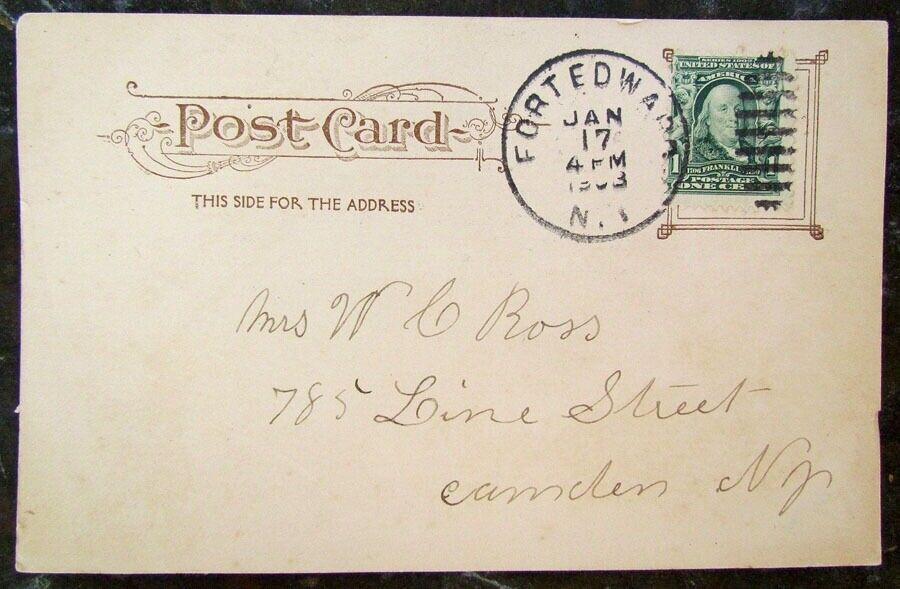 Post Card
THIS SIDE FOR THE ADDRESS
FORT EDWARD
JAN
17
4 PM
N.Y
SERIES 1902
UNITED STATES OF
AMERICA
1706 FRANKLIN 1790
POSTAGE
ONE CENT
Mrs W C Ross
785 Line Street
Camden NJ